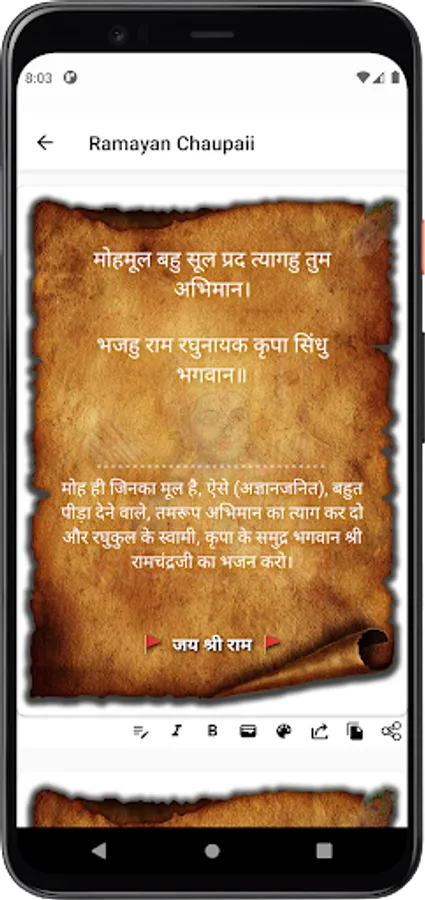 8:03
Ramayan Chaupaii
मोहमूल बहु सूल प्रद त्यागहु तुम
अभिमान।
भजहु राम रघुनायक कृपा सिंधु
भगवान॥
मोह ही जिनका मूल है, ऐसे (अज्ञानजनित), बहुत
पीड़ा देने वाले, तमरूप अभिमान का त्याग कर दो
और रघुकुल के स्वामी, कृपा के समुद्र भगवान श्री
रामचंद्रजी का भजन करो।
जय श्री राम
I B